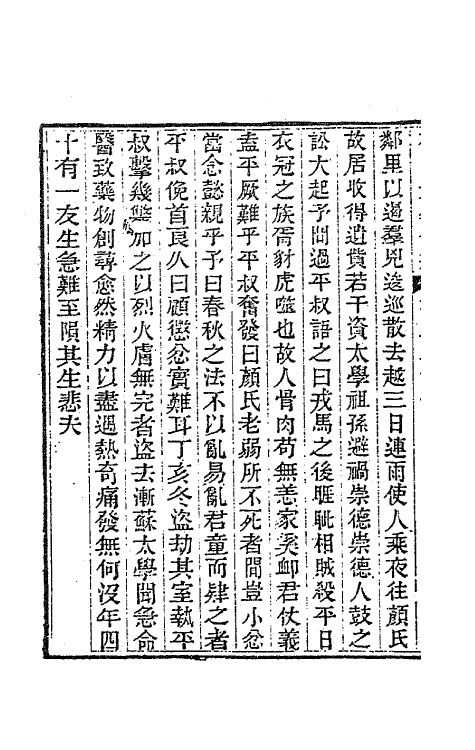 鄰里以遏羣兇逡巡散去越三日連雨使人乘夜往顏氏
故居收得遺貲若干資太學祖孫避禍崇德崇德人鼓之
訟大起予間過平叔語之曰戎馬之後睚眦相賊殺平日
衣冠之族胥豺虎噬也故人骨肉苟無恙家奚卹君仗義
盍平厥難乎平叔奮發曰顏氏老弱所不死者間豈小忿
當念懿親乎予曰春秋之法不以亂易亂君童而肄之者
平叔俛首良久曰顧懲忿實難耳丁亥冬盜劫其室執平
叔擊幾斃加之以烈火膚無完者盜去漸蘇太學聞急命
醫致藥物創尋愈然精力以盡遇熱奇痛發無何沒年四
十有一友生急難至隕其生悲夫